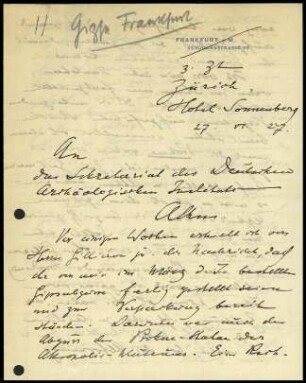 H Gipse Frankfurt
FRANKFURT A/M.
z. Zt
Zürich
Hotel Sonnenberg
27 VI 27
An
das Sekretariat des Deutschen
Archäologischen Instituts
Athen.
Vor einigen Wochen erhielt ich von
Herrn die Nachricht, daß
die von mir im März dort bestellten
Gipsabgüsse fertig gestellt seien
und zur Verpackung bereit
ständen. Darunter war auch der
Abguss der Statue des
Akropolis-Museums. Eine Rech.